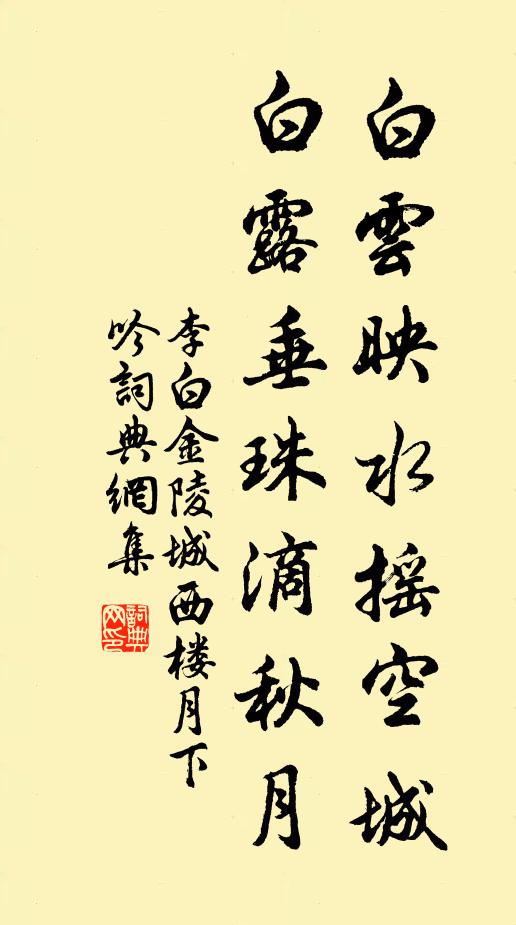 白雲映水摇空城
白露垂珠滴秋月
李白金陵城西楼月下
吟詞典網集
詞典網印